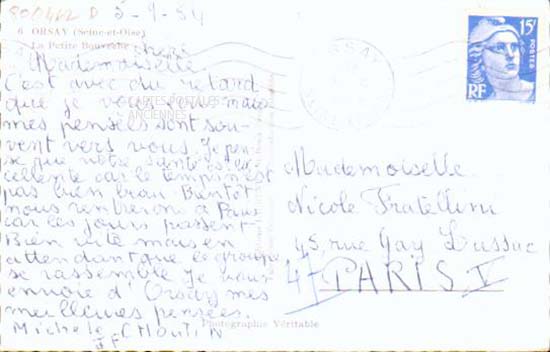 800442 D 5-9-54
6 ORSAY (Seine-et-Oise)
La Petite Bouvêche
chère
Mademoiselle
C'est avec du retard
que je vous écris mais
mes pensées sont sou-
vent vers vous. Je pen-
se que votre santé est ex-
cellente car le temps n'est
pas bien beau. Bientôt
nous rentrerons à Paris
car les jours passent
Bien vite mais en
attendant que le groupe
se rassemble Je vous
envoie d'Orsay mes
meilleures pensées.
Michele CHOUTIN
CARTES POSTALES
ANCIENNES
Photographie Véritable
ORSAY
15F
POSTES
RF
Mademoiselle
Nicole Fratellini
45 rue Gay Lussac
PARIS V